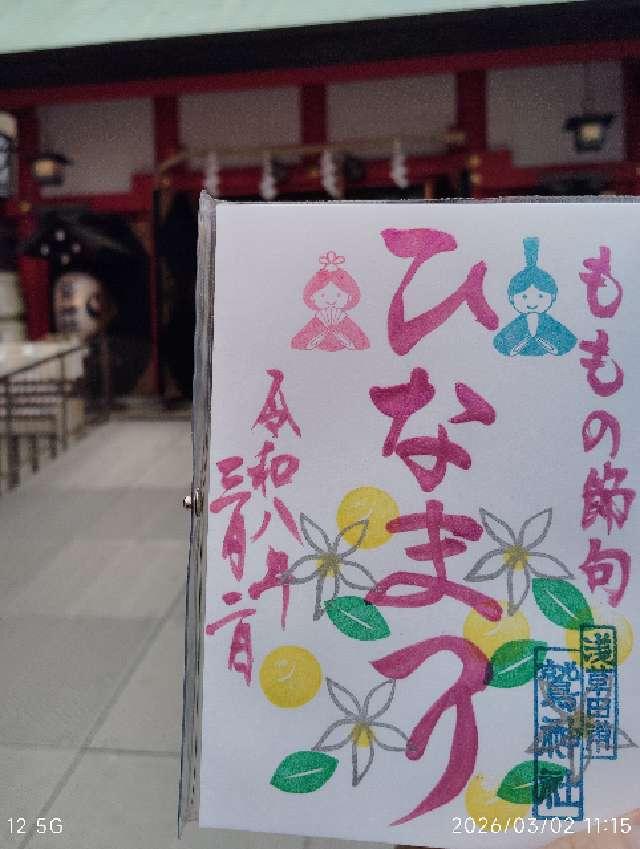 ももの節句
ひなまつり
令和八年
三月二日
浅草田甫
鷲神社
12 5G
2026/03/02 11:15